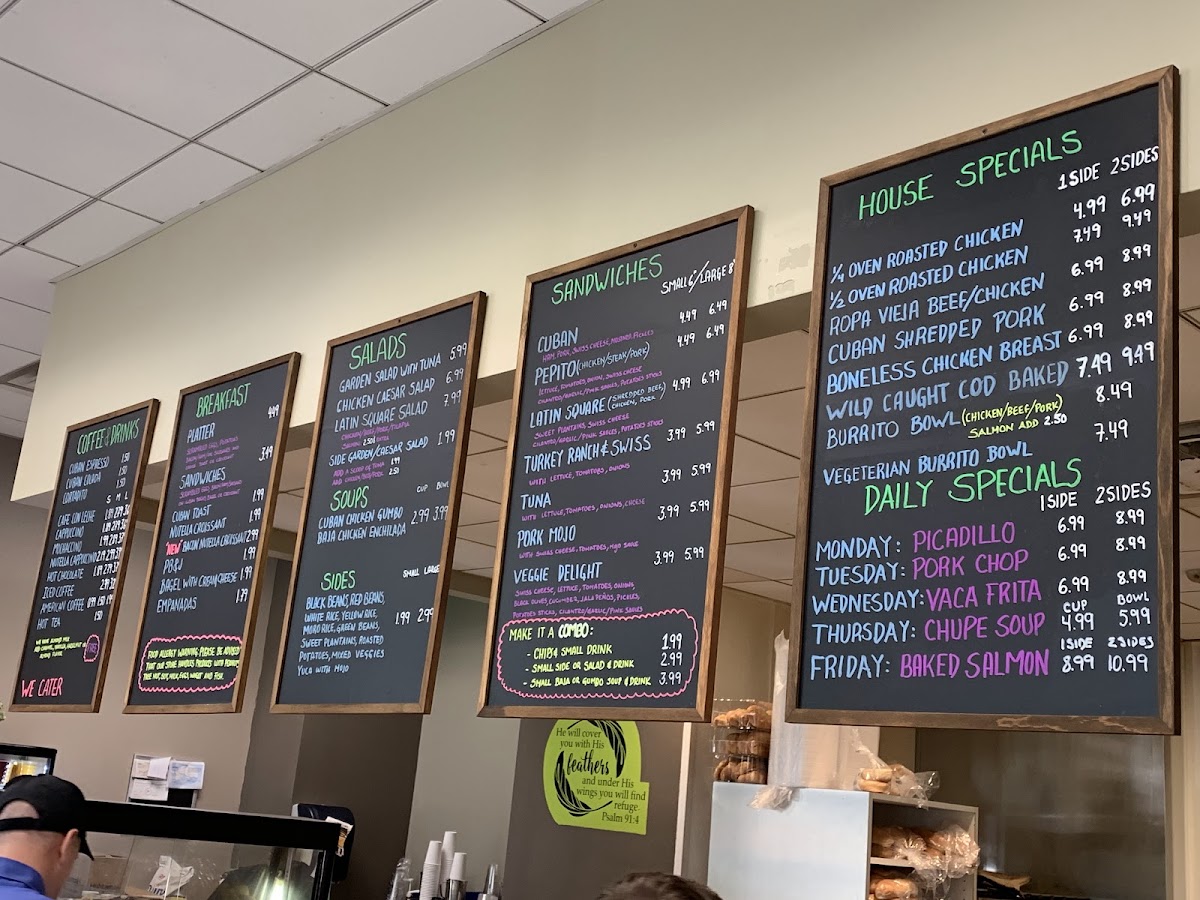 COFFEE & DRINKS
CUBAN ESPRESSO 1.50
CUBAN COLADA 1.50
CORTADITO 1.50
S M L
CAFE CON LECHE
CAPPUCCINO
MOCHACCINO
NUTELLA CAPPUCCINO
HOT CHOCOLATE
ICED COFFEE
AMERICAN COFFEE
HOT TEA 1.50
WE HAVE ALMOND MILK
FREE
WE CATER
BREAKFAST
PLATTER 4.49
SCRAMBLED EGG, POTATOES
SANDWICHES 3.49
CUBAN TOAST 1.99
NUTELLA CROISSANT 1.99
"NEW" BACON NUTELLA CROISSANT 2.99
PB&J 1.99
BAGEL WITH CREAM CHEESE 1.99
EMPANADAS 1.79
FOOD ALLERGY WARNING PLEASE BE ADVISED
THAT OUR STORE HANDLES PRODUCTS WITH PEANUTS
TREE NUT, SOY, MILK, EGGS, WHEAT AND FISH.
SALADS
GARDEN SALAD WITH TUNA 5.99
CHICKEN CAESAR SALAD 6.99
LATIN SQUARE SALAD 7.99
CHICKEN/BEEF/PORK/TILAPIA
SALMON 2.50 EXTRA
SIDE GARDEN/CAESAR SALAD 1.99
ADD A SCOOP OF TUNA 1.99
ADD CHICKEN/BEEF/PORK 2.50
SOUPS CUP BOWL
CUBAN CHICKEN GUMBO
BAJA CHICKEN ENCHILADA 2.99 3.99
SIDES SMALL LARGE
BLACK BEANS, RED BEANS
WHITE RICE, YELLOW RICE, 1.99 2.99
MORO RICE, GREEN BEANS,
SWEET PLANTAINS, ROASTED
POTATOES, MIXED VEGGIES
YUCA WITH MOJO
SANDWICHES SMALL 6"/LARGE 8"
CUBAN 4.49 6.49
HAM, PORK, SWISS CHEESE, MUSTARD, PICKLES
PEPITO (CHICKEN/STEAK/PORK) 4.49 6.49
LETTUCE, TOMATOES, ONION, SWISS CHEESE
CILANTRO/GARLIC/PINK SAUCES, POTATOES STICKS
LATIN SQUARE (SHREDDED BEEF, CHICKEN, PORK) 4.99 6.99
SWEET PLANTAINS, SWISS CHEESE
CILANTRO/GARLIC/PINK SAUCES, POTATO STICKS
TURKEY RANCH & SWISS 3.99 5.99
WITH LETTUCE, TOMATOES, ONIONS
TUNA 3.99 5.99
WITH LETTUCE, TOMATOES, ONIONS, CHEESE
PORK MOJO 3.99 5.99
WITH SWISS CHEESE, TOMATOES, MOJO SAUCE
VEGGIE DELIGHT 3.99 5.99
SWISS CHEESE, LETTUCE, TOMATOES, ONIONS,
BLACK OLIVES, CUCUMBER, JALAPEÑOS, PICKLES,
POTATOES STICKS, CILANTRO/GARLIC/PINK SAUCES
MAKE IT A COMBO:
- CHIPS & SMALL DRINK 1.99
- SMALL SIDE OR SALAD & DRINK 2.99
- SMALL BAJA OR GUMBO SOUP & DRINK 3.99
HOUSE SPECIALS
1 SIDE 2 SIDES
1/4 OVEN ROASTED CHICKEN 4.99 6.99
1/2 OVEN ROASTED CHICKEN 7.49 9.49
ROPA VIEJA BEEF/CHICKEN 6.99 8.99
CUBAN SHREDDED PORK 6.99 8.99
BONELESS CHICKEN BREAST 6.99 8.99
WILD CAUGHT COD BAKED 7.49 9.49
BURRITO BOWL (CHICKEN/BEEF/PORK) 8.49
SALMON ADD 2.50
VEGETERIAN BURRITO BOWL 7.49
DAILY SPECIALS
1 SIDE 2 SIDES
MONDAY: PICADILLO 6.99 8.99
TUESDAY: PORK CHOP 6.99 8.99
WEDNESDAY: VACA FRITA 6.99 8.99
CUP BOWL
THURSDAY: CHUPE SOUP 4.99 5.99
1 SIDE 2 SIDES
FRIDAY: BAKED SALMON 8.99 10.99
He will cover
you with His
feathers
and under His
wings you will find
refuge.
Psalm 91:4